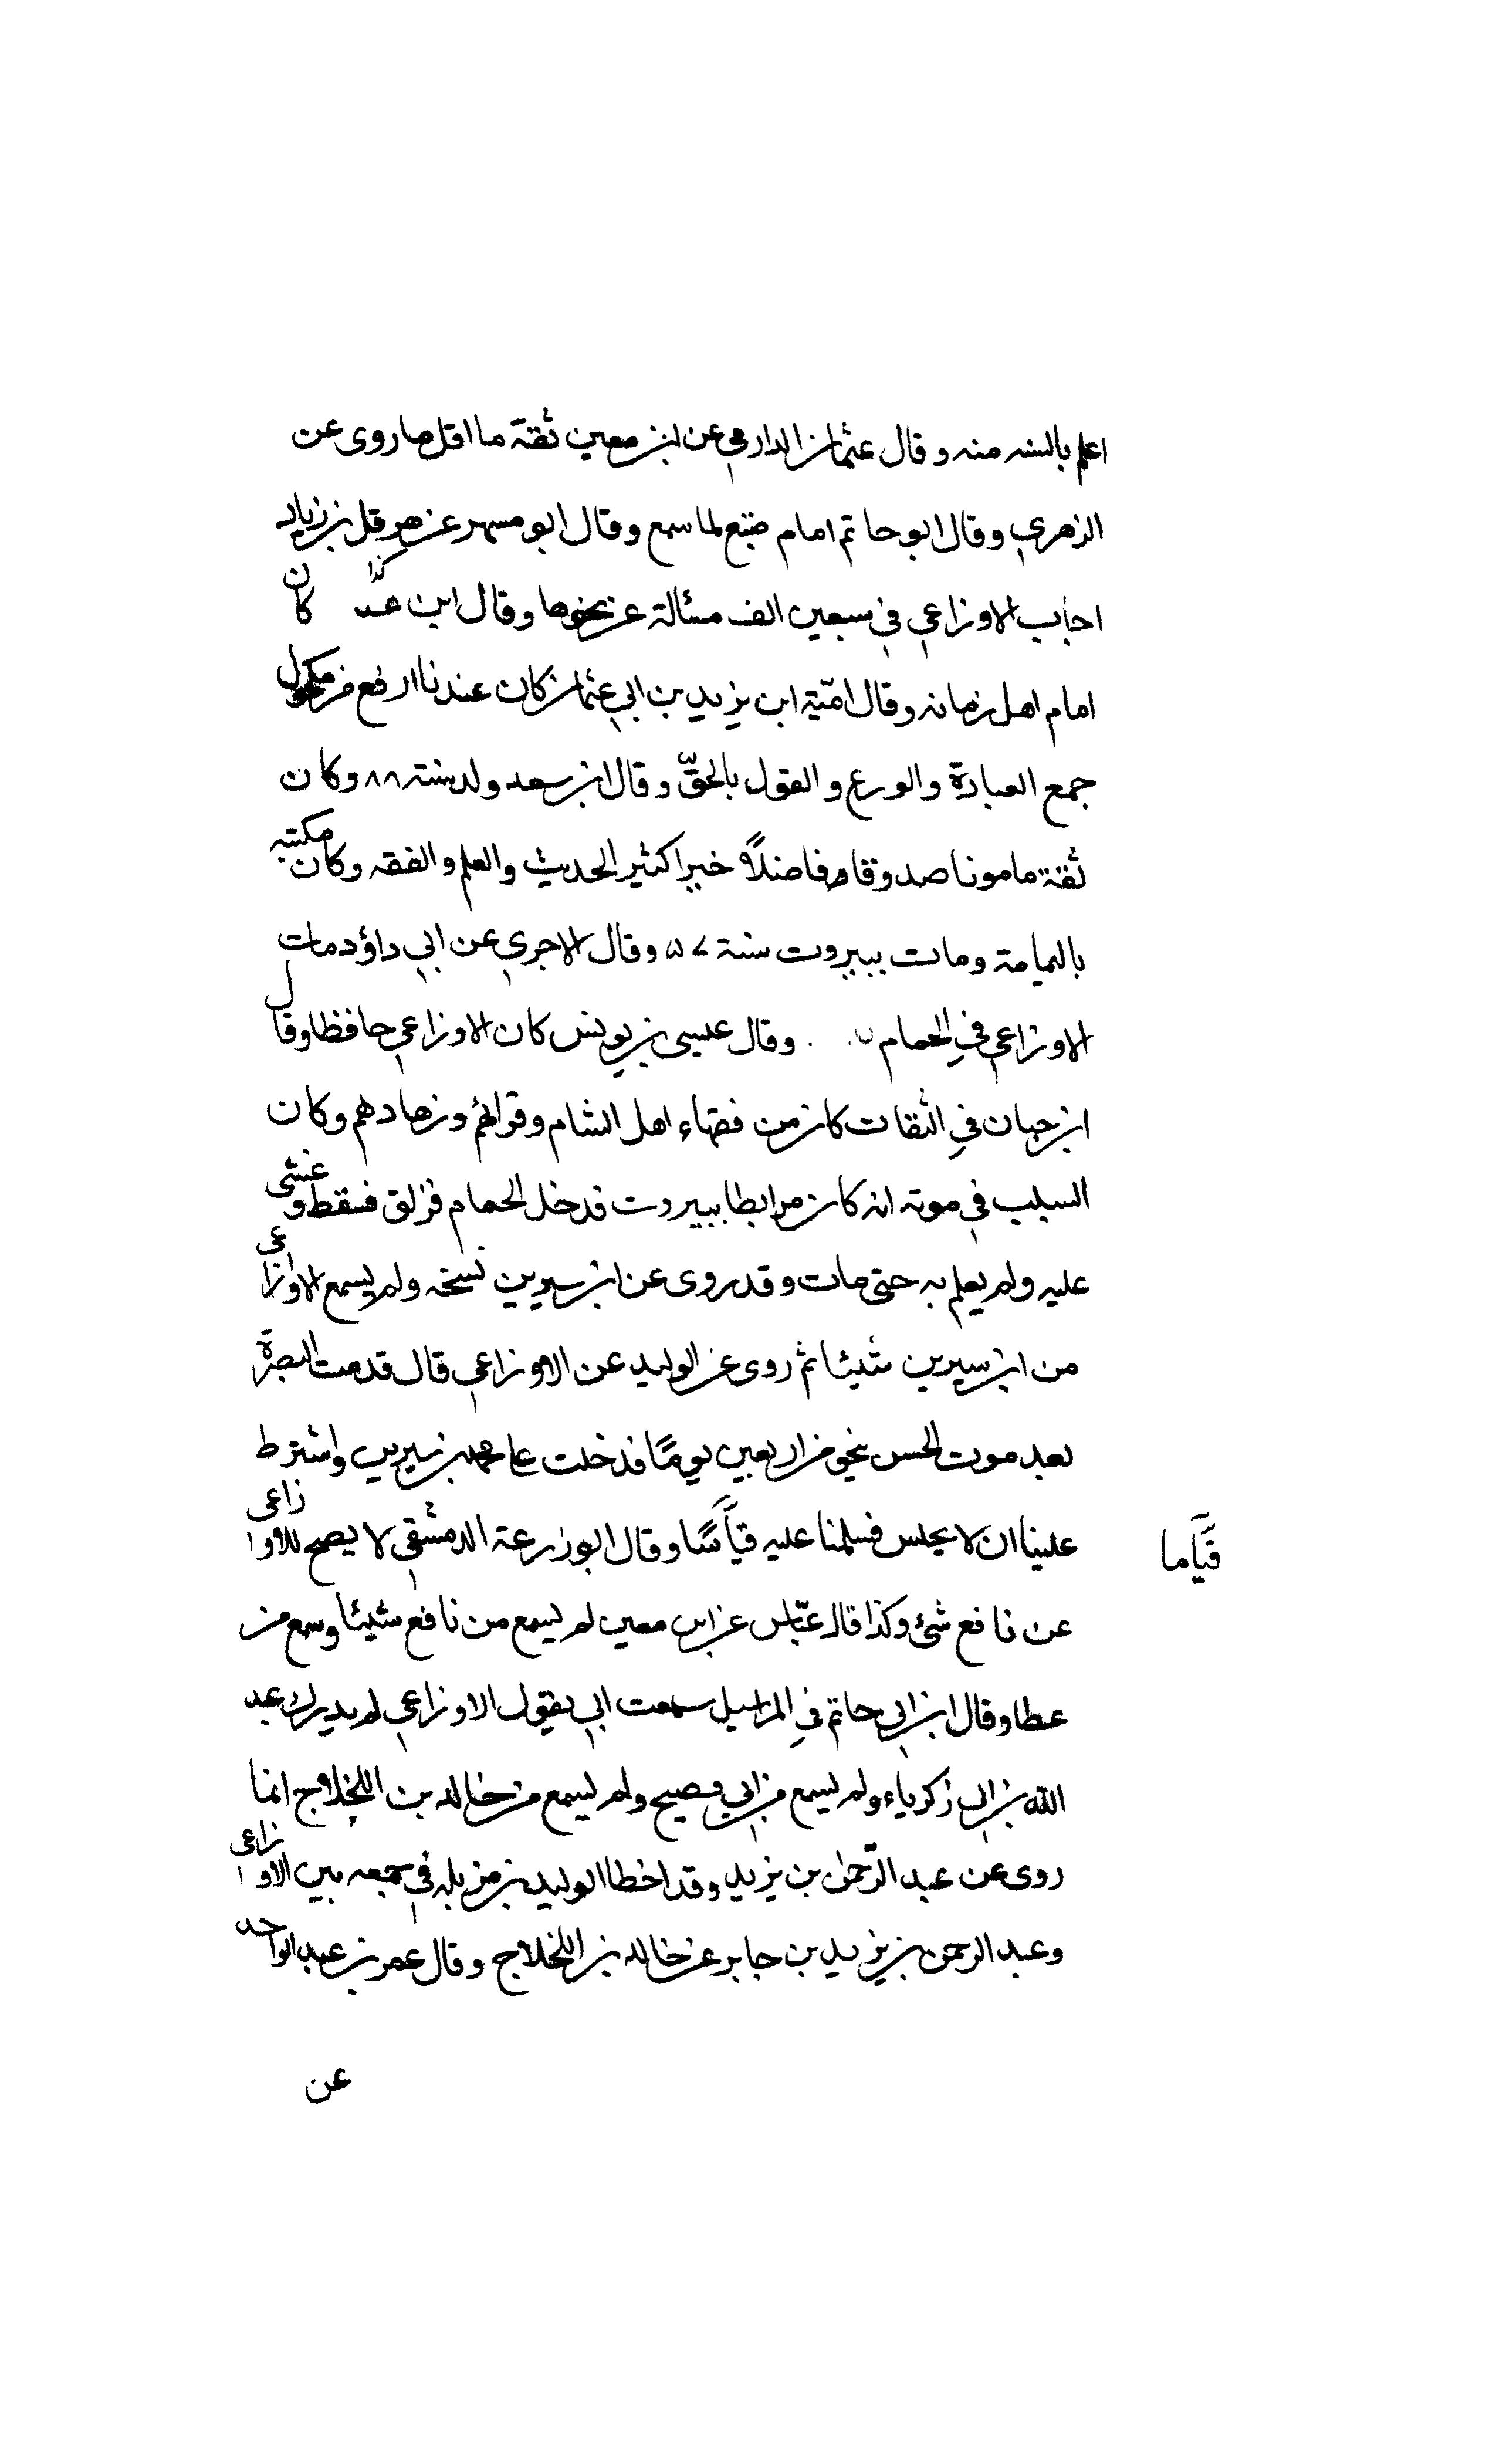 اعلم بالسنه منه وقال عثمان الدارمي عن ابن معين ثقة ما اقل ما روى عن
الزهري وقال ابو حاتم امام متبع لما سمع وقال ابو مسهر عن هقل بن زياد
اجاب الاوزاعي في سبعين الف مسئالة عن نحوها وقال ابن كذا كان
امام اهل زمانه وقال امّية ابن يزيد بن ابي عثمان كان عندنا ارفع من مكحول
جمع العبادة والورع والقول بالحقّ وقال ابن سعد ولد سنة ٨٨ وكان
ثقة مامونا صدوقا فاضلاً خيرا كثير الحديث والعلم والفقه وكان مكتبه
باليمامة ومات ببيروت سنة ٥٧ وقال الاجري عن ابي داؤد مات
الاوزاعي في الحمام وقال عيسى بن يونس كان الاوزاعي حافظا وقال
ابن حبان في الثقات كان من فقهاء اهل الشام وقرائهم وزهادهم وكان
السبب في موته انه كان مرابطا ببيروت فدخل الحمام فزلق فسقط وغشى
عليه ولم يعلم به حتى مات وقد روى عن ابن سيرين نسخه ولم يسمع الاوزاعى
من ابن سيرين شيئا ثم روى عن الوليد عن الاوزاعي قال قدمت البصرة
بعد موت الحسن بنحو من اربعين يومًا فدخلت على محمد بن سيرين واشترط
علينا ان لا يجلس فسلمنا عليه قيامًا وقال ابو زرعة الدمشقي لا يصح للاوزاعى
قيّاما
عن نافع شئ وكذا قال عبّاس عن ابن معين لم يسمع من نافع شيئا وسمع من
عطا وقال ابن ابي حاتم في المراسيل سمعت ابي يقول الاوزاعي لم يدرك عبد
الله بن ابي زكرياء ولم يسمع من ابي مصبح ولم يسمع من خالد بن اللجلاج انما
روى عن عبد الرّحمن بن يزيد وقد اخطا الوليد بن مزيد في جمعه بين الاوزاعى
وعبد الرحمن بن يزيد بن جابر عن خالد بن اللجلاج وقال عمر بن عبد الواحد
عن